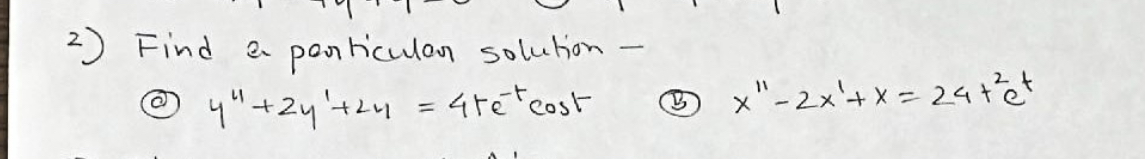 2) Find a particular solution —
ⓐ y'' + 2y' + 2y = 4te⁻ᵗcost ⓑ x'' - 2x' + x = 24t²eᵗ